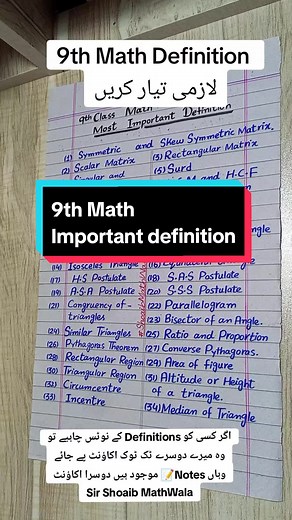 9th Math Definition
لازمی تیار کریں
9th Class Math
Most Important Definition
(1) Symmetric and Skew Symmetric Matrix,
(2) Scalar Matrix
(3) Rectangular Matrix
(5) Surd
and
H.C.F
9th Math
Important definition
(14) Isosceles Triangle
(17) H.S Postulate
(18) S.A.S Postulate
(19) A.S.A Postulate
(20) S.S.S Postulate
(21) Congruency of - triangles
(22) Parallelogram
(23) Bisector of an Angle.
(24) Similar Triangles
(25) Ratio and Proportion
(26) Pythagoras Theorem
(27) Converse Pythagoras.
(28) Rectangular Region
(29) Area of figure
(30) Triangular Region
(31) Altitude or Height of a triangle.
(32) Circumcentre
(33) Incentre
(34) Median of Triangle
اگر کسی کو Definitions کے نوٹس چاہیے تو
وہ میرے دوسرے ٹک ٹوک اکاؤنٹ پے جائے
وہاں Notes📝 موجود ہیں دوسرا اکاؤنٹ
Sir Shoaib MathWala